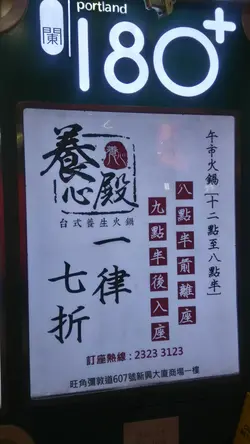 portland
蘭
180+
午市火鍋[十二點至八點半]
八點半前離座
九點半後入座
養心殿
養心
台式養生火鍋
一律
七折
訂座熱線 : 2323 3123
旺角彌敦道607號新興大廈商場一樓